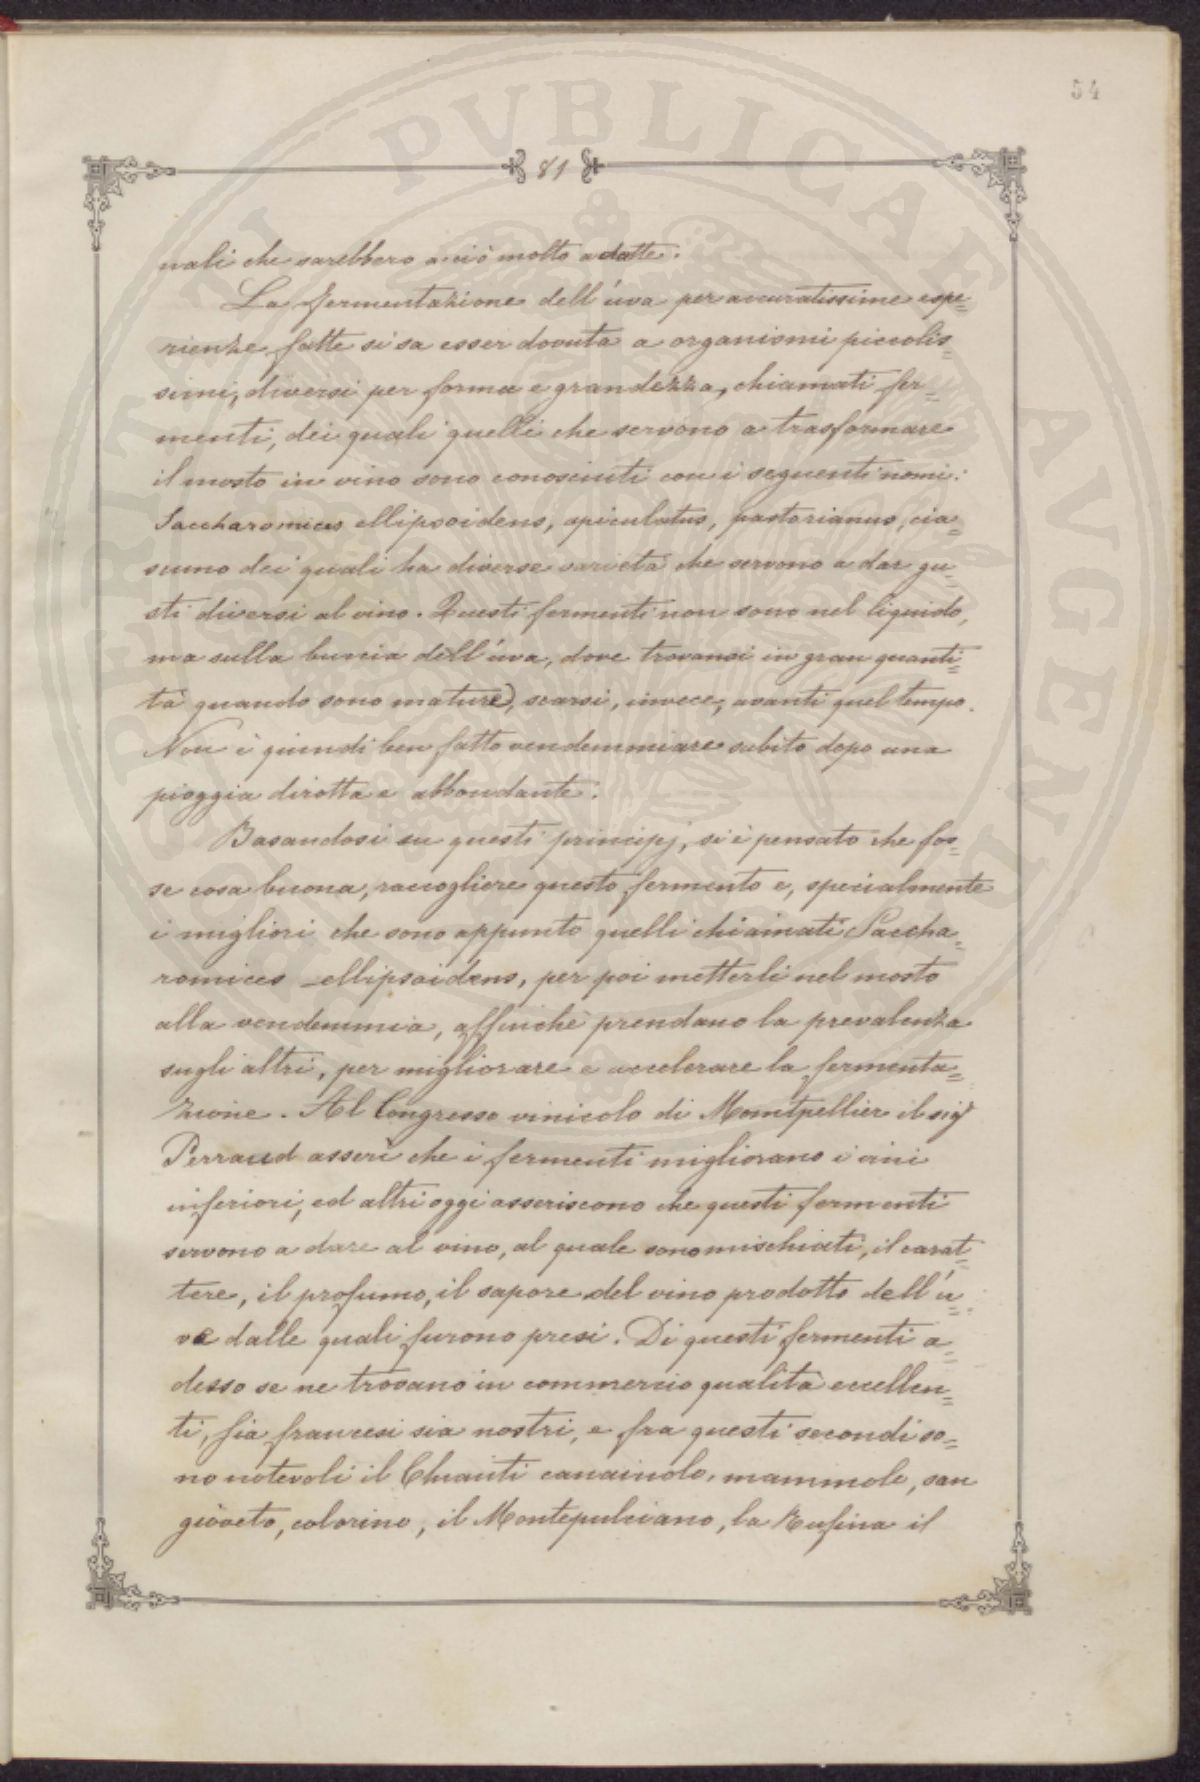 54
81
nali che sarebbero a ciò molto adatte.
La fermentazione dell'uva per accuratissime espe=
rienze fatte si sa esser dovuta a organismi piccolis=
simi, diversi per forma e grandezza, chiamati fer=
menti, dei quali quelli che servono a trasformare
il mosto in vino sono conosciuti con i seguenti nomi:
Saccharomices ellipsoidens, apiculatus, pastorianus, cia=
scuno dei quali ha diverse varietà che servono a dar gu=
sti diversi al vino. Questi fermenti non sono nel liquido,
ma sulla buccia dell'uva, dove trovansi in gran quanti=
tà quando sono mature, scarsi, invece, avanti quel tempo.
Non è quindi ben fatto vendemmiare subito dopo una
pioggia dirotta e abbondante.
Basandosi su questi principj, si è pensato che fos=
se cosa buona, raccogliere questo fermento e, specialmente
i migliori che sono appunto quelli chiamati Saccha=
romices ellipsoidens, per poi metterli nel mosto
alla vendemmia, affinchè prendano la prevalenza
sugli altri, per migliorare e accelerare la fermenta=
zione. Al Congresso vinicolo di Montpellier il sigr
Perraud asserì che i fermenti migliorano i vini
inferiori, ed altri oggi asseriscono che questi fermenti
servono a dare al vino, al quale sono mischiati, il carat=
tere, il profumo, il sapore del vino prodotto dell'u=
va dalle quali furono presi. Di questi fermenti a=
desso se ne trovano in commercio qualità eccellen=
ti, sia francesi sia nostri, e fra questi secondi so=
no notevoli il Chianti canaiuolo, mammole, san
gioveto, colorino, il Montepulciano, la Rufina il
PERITAN PVBLICAE AVGENDA